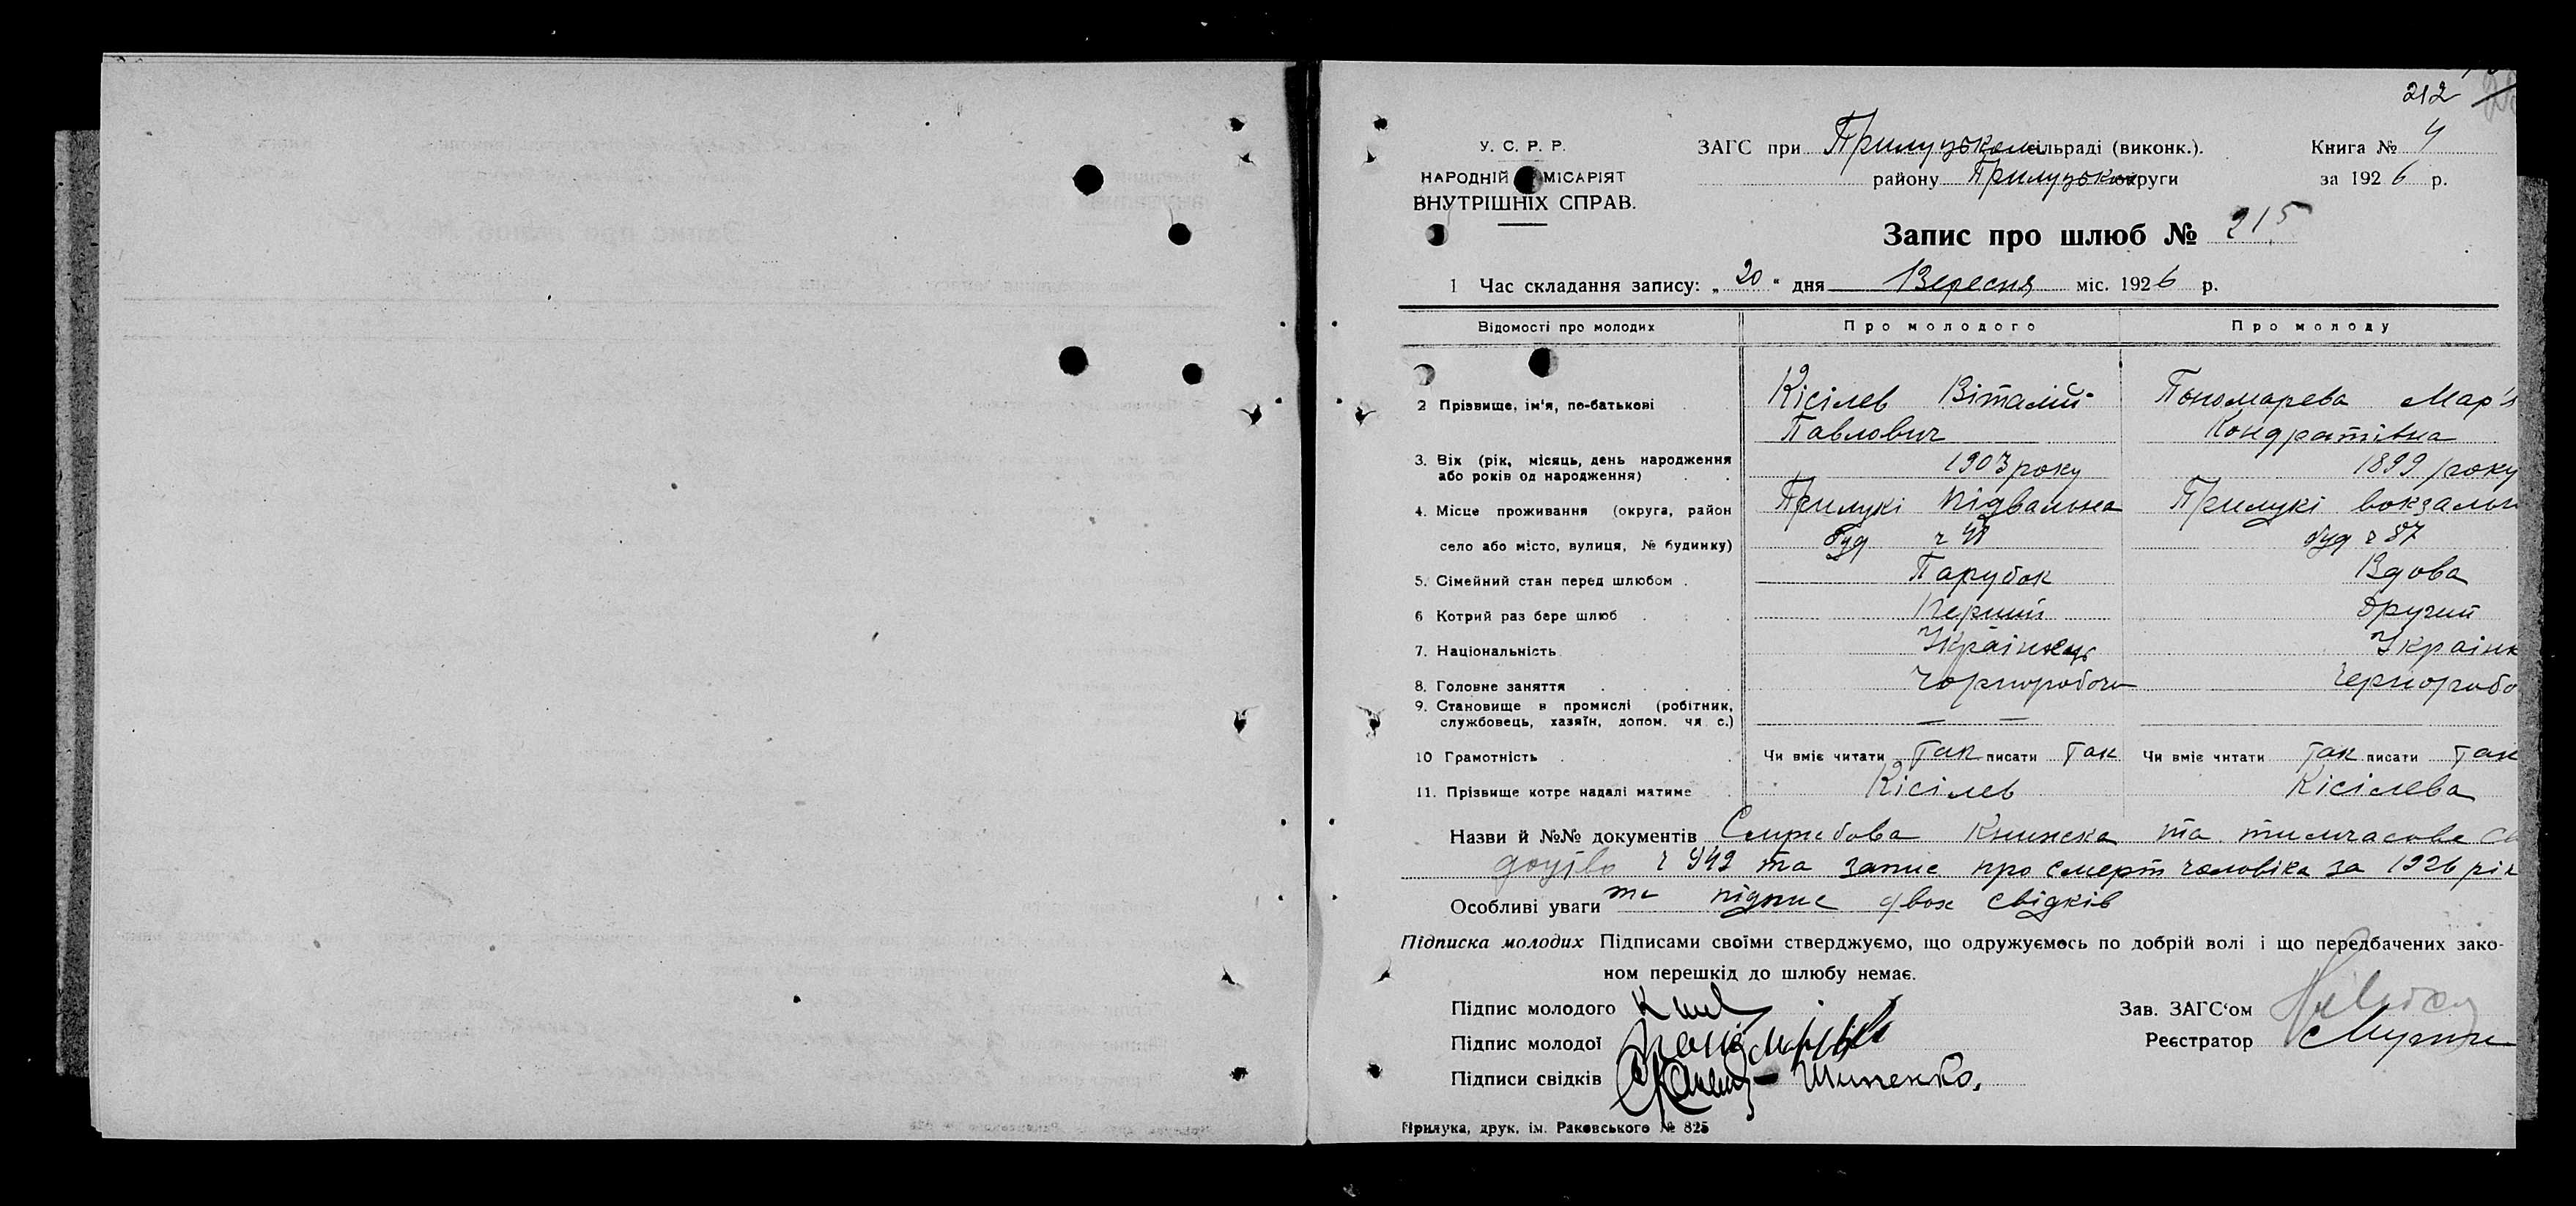 212
У. С. Р. Р.
НАРОДНІЙ МІСАРІЯТ
ВНУТРІШНІХ СПРАВ.
ЗАГС при Прилуцькому сільраді (виконк.).
району Прилуцької округи
Книга № 4
за 1926 р.
Запис про шлюб № 215
1 Час складання запису: „20“ дня Вересня міс. 1926 р.
Відомості про молодих Про молодого Про молоду
2 Прізвище, ім'я, по-батькові Кісілев Віталий Пономарева Мар'я
Павлович Кондратівна
3. Вік (рік, місяць, день народження
або років од народження) 1903 року 1899 року
4. Місце проживання (округа, район Прилукі підвальна Прилукі вокзальн
село або місто, вулиця, № будинку) буд ч буд ч 87
5. Сімейний стан перед шлюбом Парубок Вдова
6 Котрий раз бере шлюб Перший другий
7. Національність Українець Українк
8. Головне заняття Чорноробоч Черноробо
9. Становище в промислі (робітник,
службовець, хазяїн, допом. чл с.) — —
10 Грамотність Чи вміє читати так писати так Чи вміє читати так писати так
11. Прізвище котре надалі матиме Кісілев Кісілева
Назви й №№ документів Службова Книжка та тимчасове
ч 942 та запис про смерт чоловіка за 1926 рік
Особливі уваги та підпис двох свідків
Підписка молодих Підписами своїми стверджуємо, що одружуємось по добрій волі і що передбачених зако-
ном перешкід до шлюбу немає.
Підпис молодого
Зав. ЗАГС‘ом
Підпис молодої
Реєстратор
Підписи свідків Шипенко.
Прилука, друк. ім. Раковського № 825